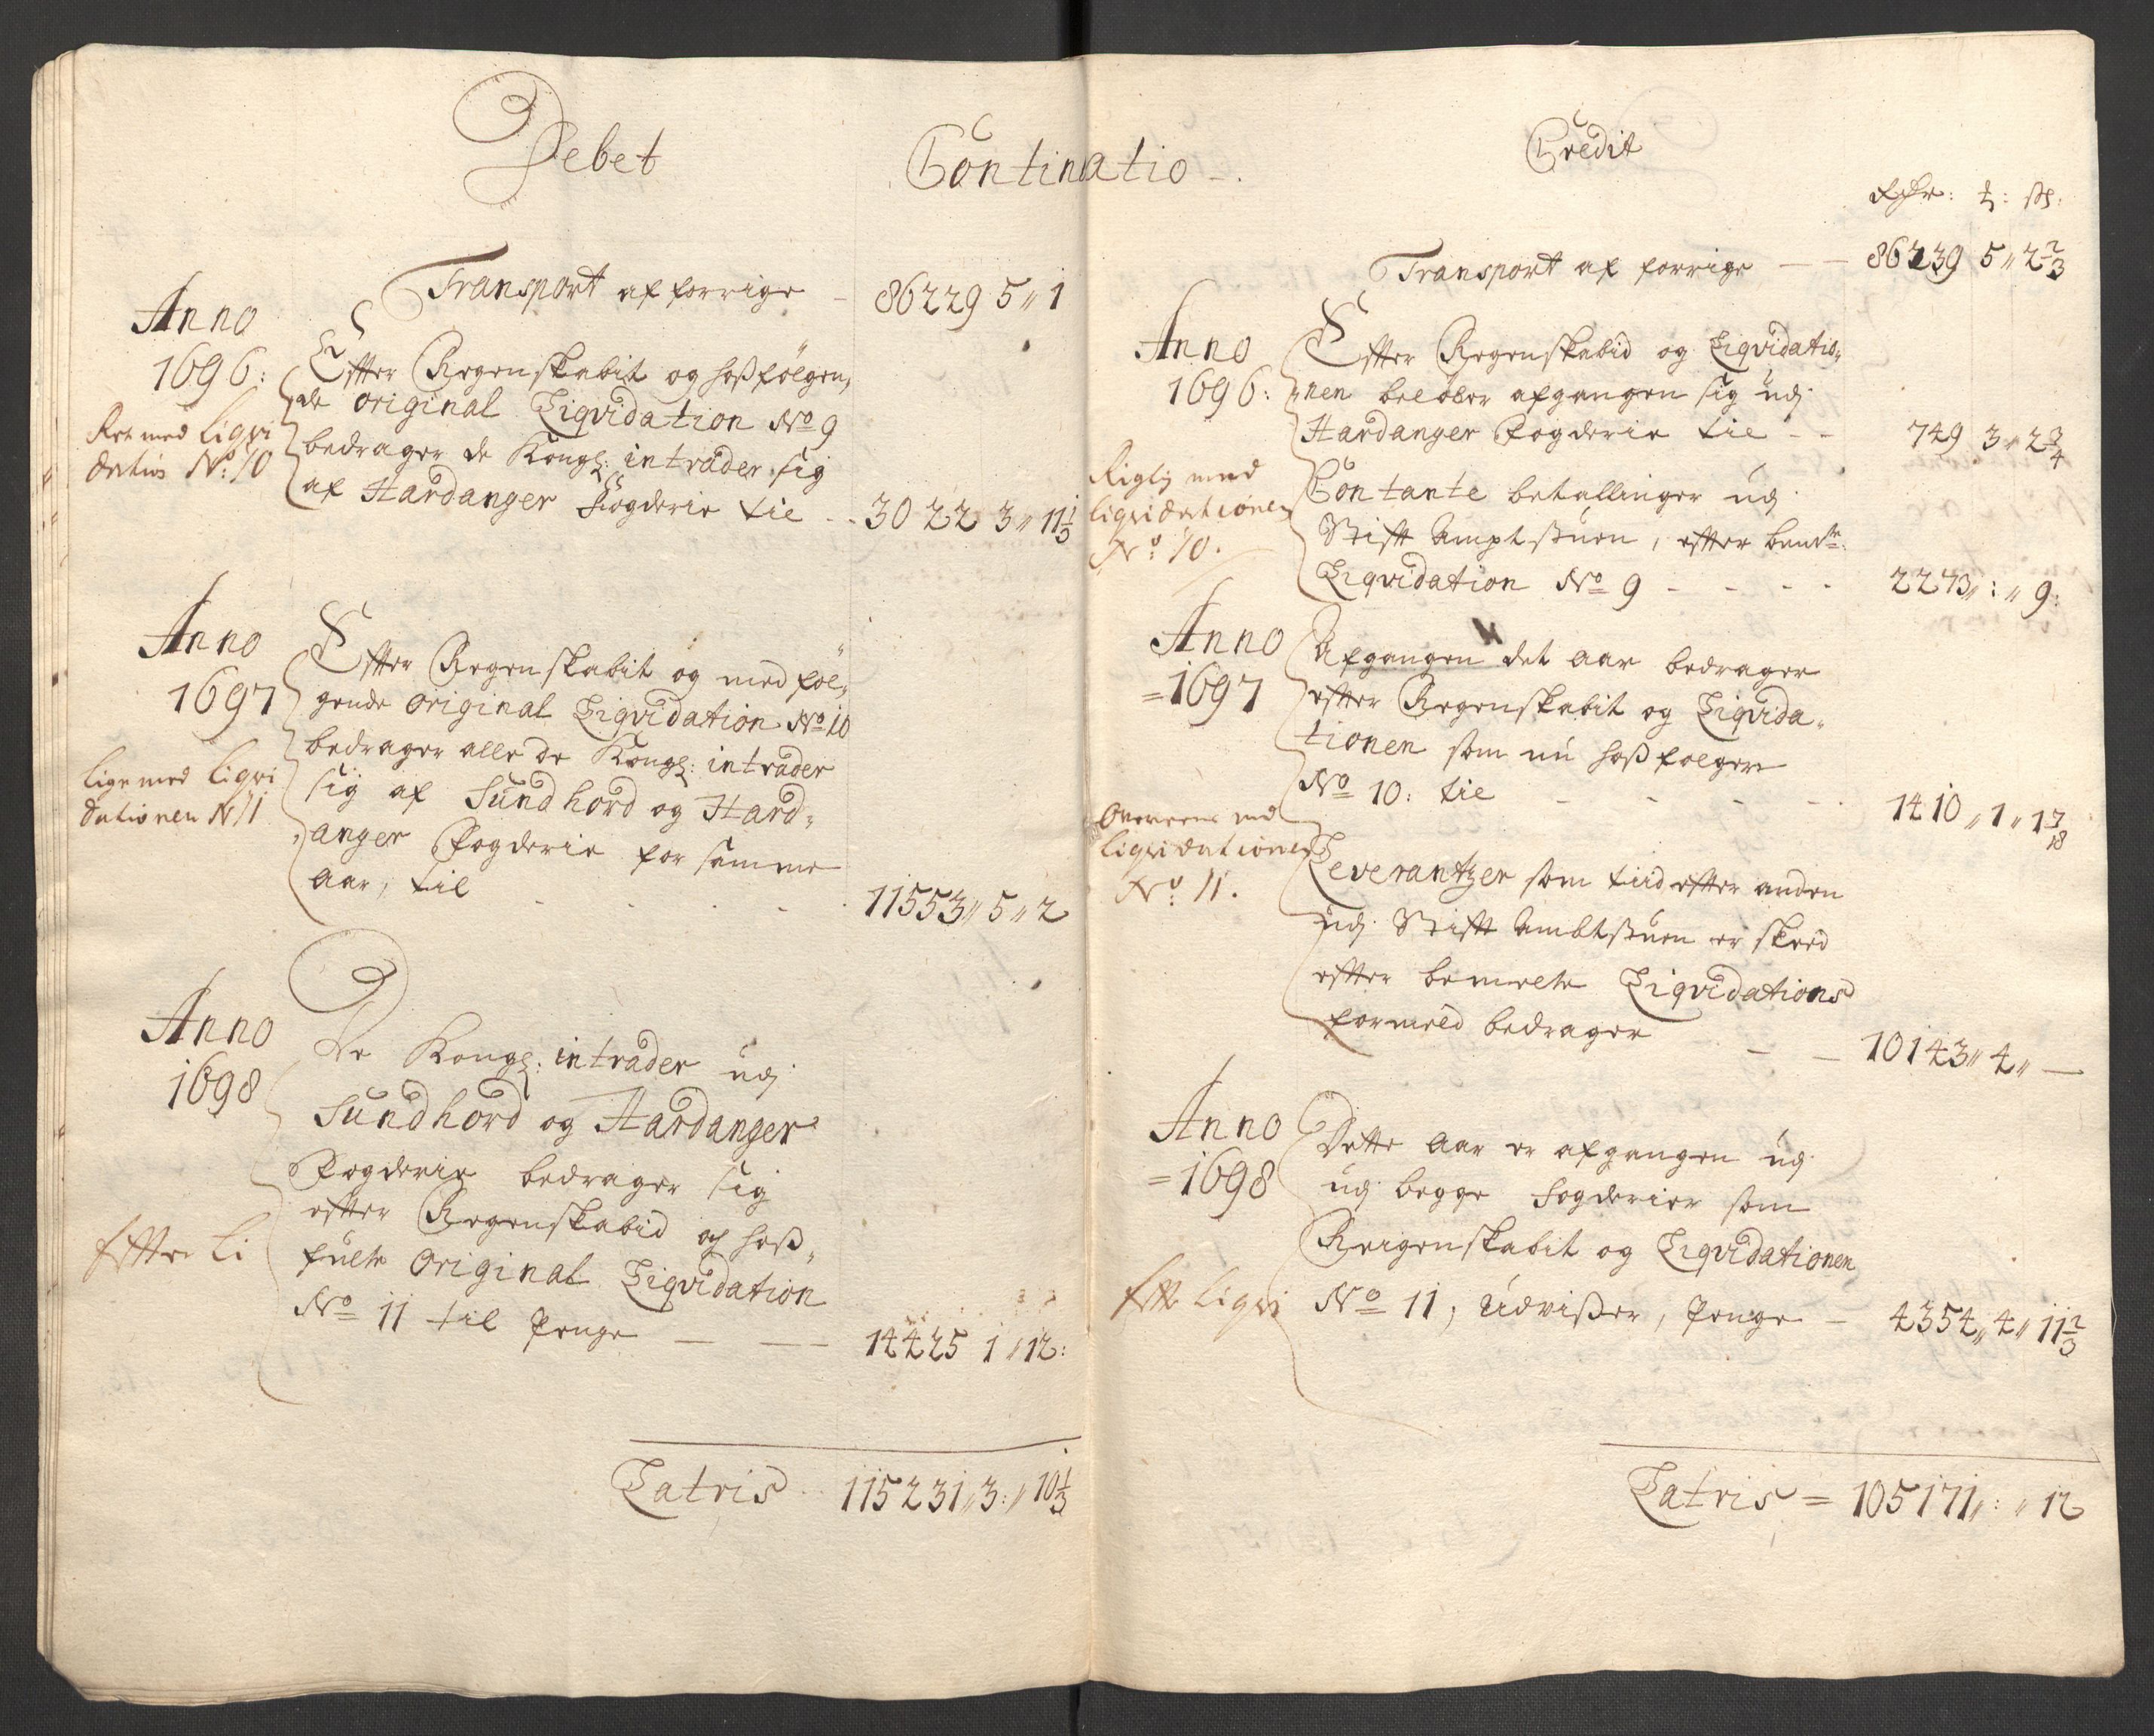 Debet
Continatio -.
Transport af forrige - 86229 5 " 1
Anno
1696:
Efter Regenskabit og hosfölgen,
de original Liqvidation No 9
bedrager de Kongl: intrader sig
af Hardanger fogderie til - - 3022 3 " 11 1/3
Ret med Liqvi
dation No: 10
Anno
1697
Efter Regenskabit og med föl,
gende original Liqvidation No 10
bedrager alle de Kongl: intrader
sig af Sundhord og Hard,
anger Fogderie for samme
Aar, til - - - - 11553 " 5 " 2
lige med Liqvi
dationen N 11
Anno
1698
De Kongl: intrader udj
Sundhord og Hardanger
Fogderie bedrager sig
efter Regenskabid og hoß,
fulte Original Liqvidation
No 11 til Penge - - 14425 1 " 12:
Efter Li
Latris 115231 " 3: " 10 1/3
Credit
Rdr: ƶ: sk:
Transport af forrige - - 86239 5 " 2 2/3
Anno
1696:
Efter Regenskabid og Liqvidatio,
nen beløber afgangen sig udj
Hardanger Fogderie til - - 749 3 " 2 3/4
Rigtig med
liqvidationen
No: 10.
Contante betallinger udj
Stift Amptstuen, efter bemte
Liqvidation No 9 - - - - 2273 " : " 9:
Anno
=1697
Afgangen det Aar bedrager
efter Regenskabit og Liqvida,
tionen som nu hoßfølger
No 10: til - - - - 1410 " 1 " 1 7/18
Overeens med
liqvidationen
No: 11.
Leverantzer som tiid efter anden
udj Stift Ambtstuen er skeed
efter bemelte Liqvidations
formeld bedrager - - 10143 " 4 " —
Anno
=1698
Dette Aar er afgangen udj
udj begge fogderier som
Reigenskabit og Liqvidationen
No 11, Udvißer, Penge - 4354 " 4 " 11 2/3
Efte Liqvi
Latris = 105171 " : " 12